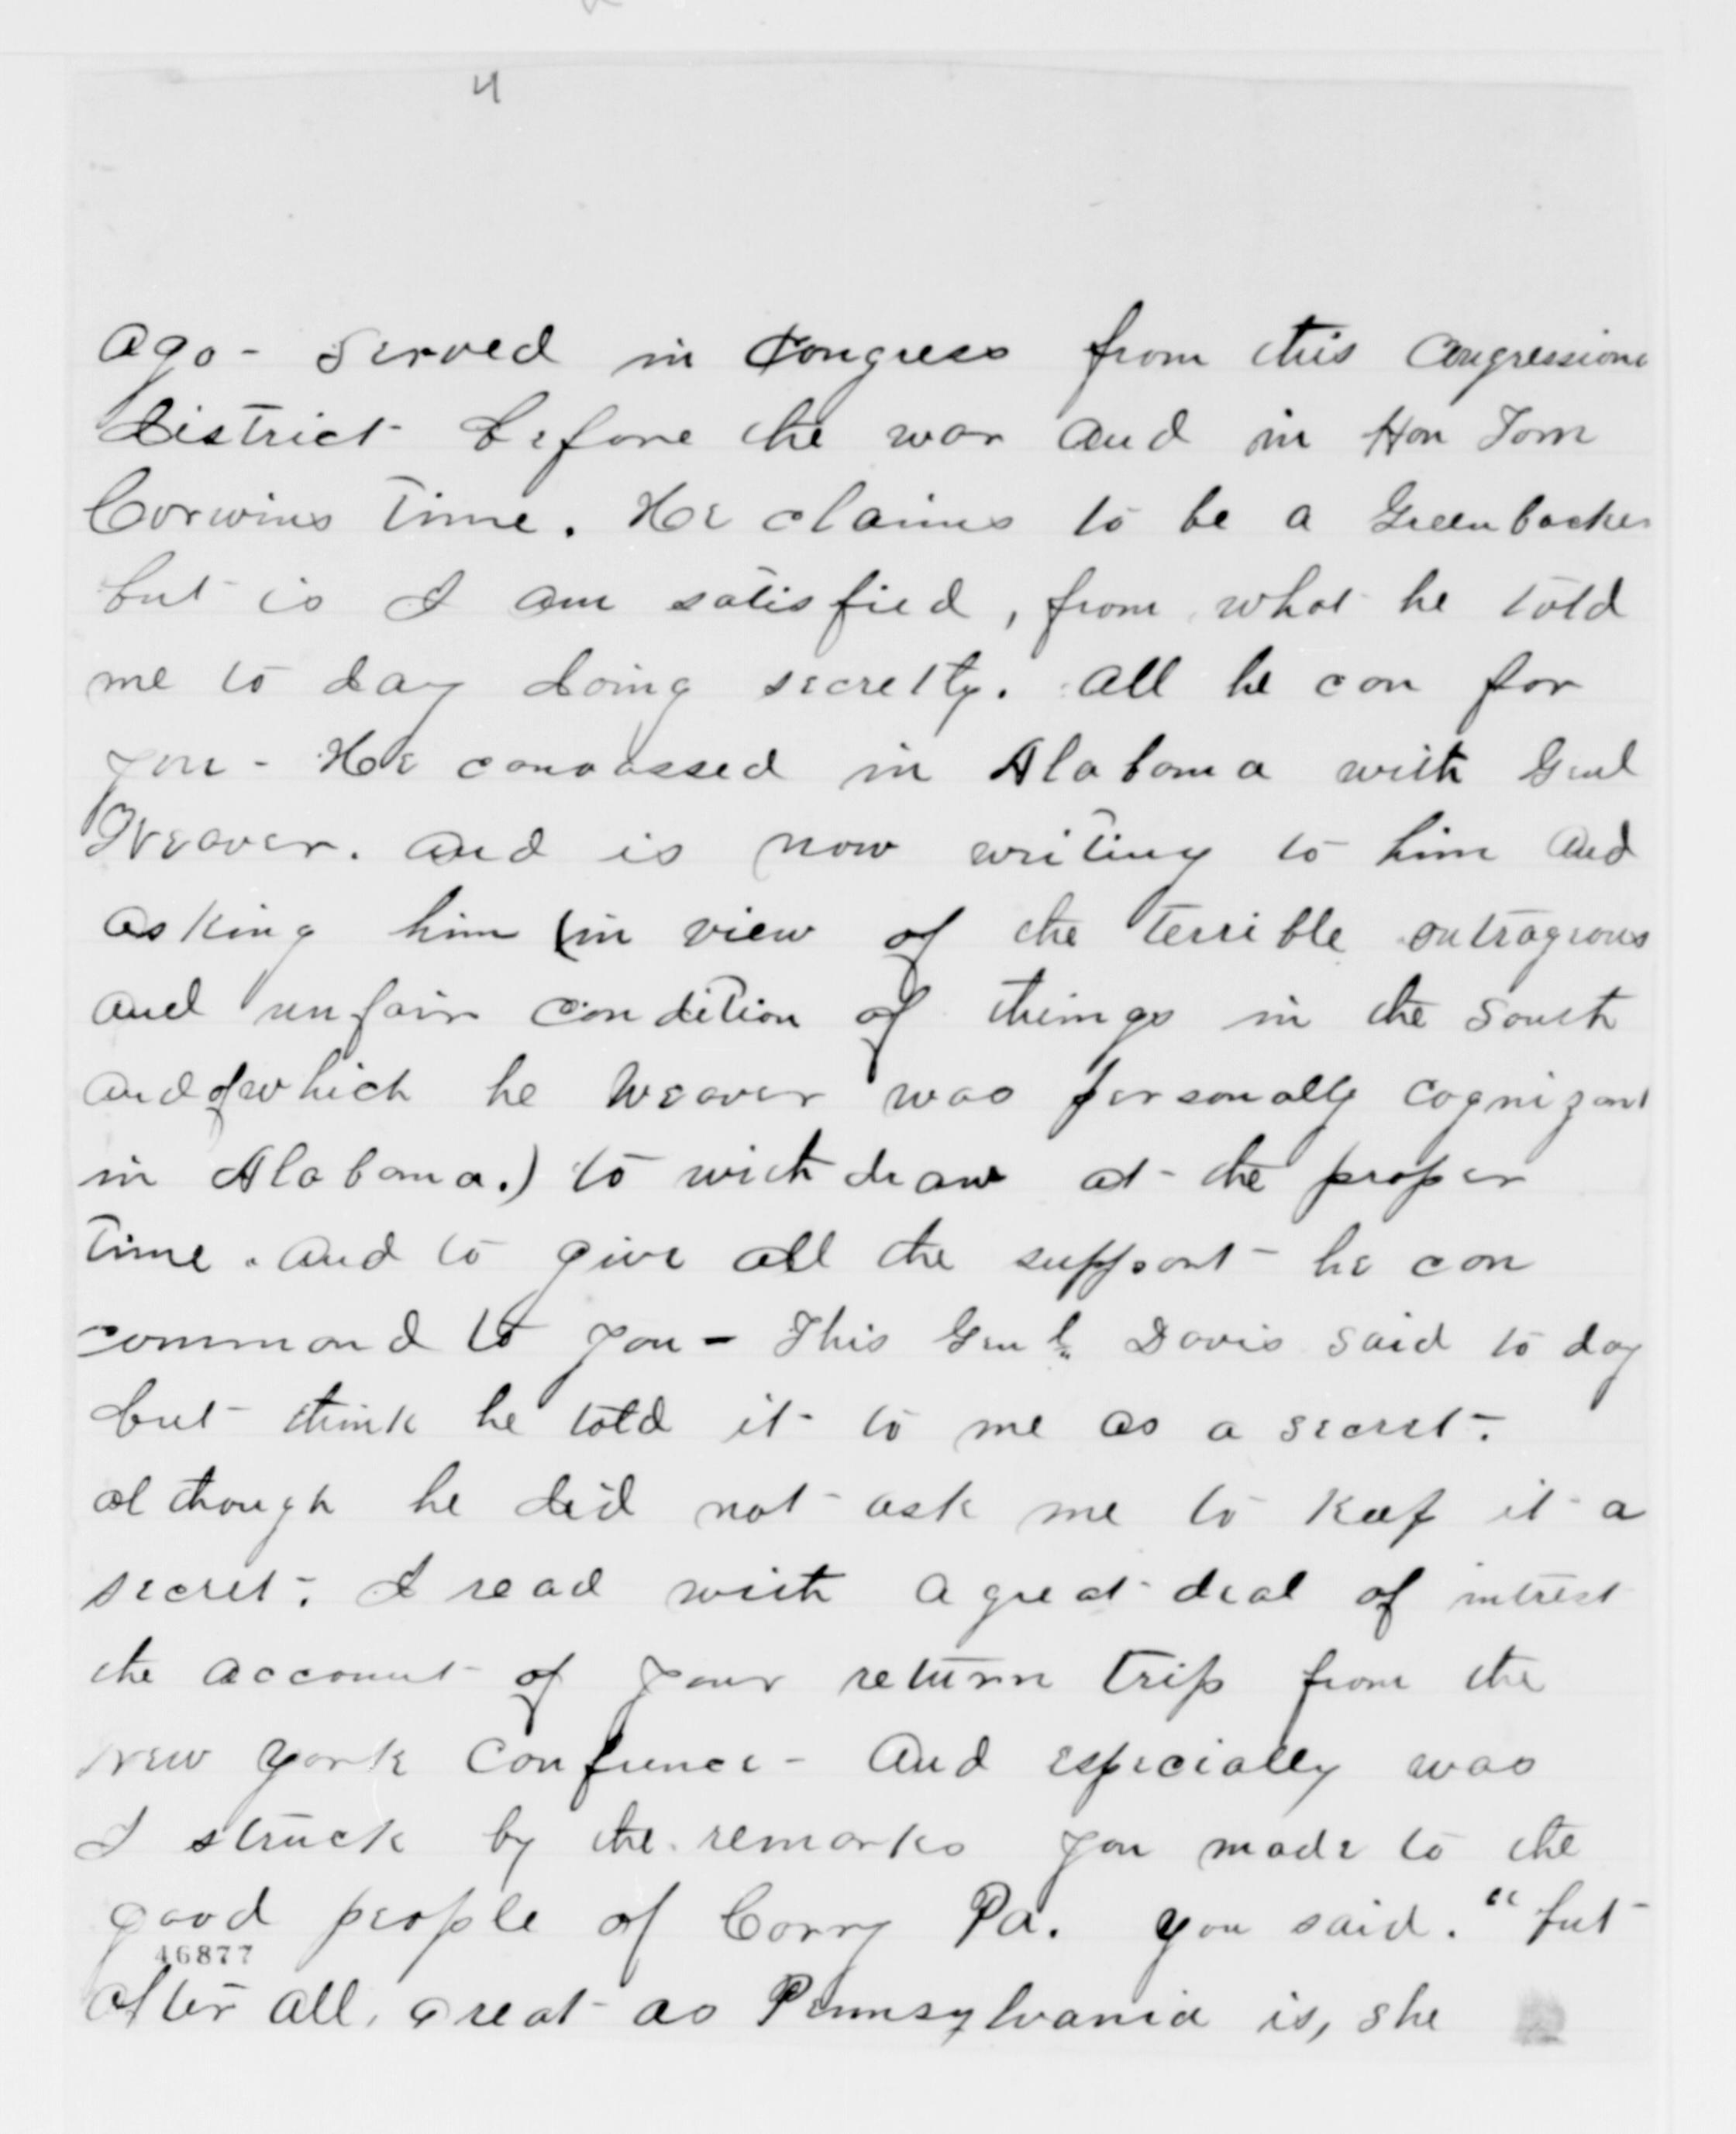 4
ago - Served in Congress from this Congressiona
District before the war and in Hon Tom
Corwins time. He claims to be a Greenbacker
but is I am satisfied, from what he told
me to day doing secretly. all he can for
you - He canvassed in Alabama with Genl
Weaver. and is now writing to him and
asking him (in view of the terrible outrageous
and unfair condition of things in the South
and of which he Weaver was personally cognizant
in Alabama.) to withdraw at the proper
time. and to give all the support he can
command to you - This Genl. Davis said to day
but think he told it to me as a secret.
although he did not ask me to keep it a
secret. I read with a great deal of intrest
the account of your return trip from the
New York Confrence - And especially was
I struck by the remarks you made to the
good people of Corry Pa. you said. "but
46877
after all, great as Pennsylvania is, she